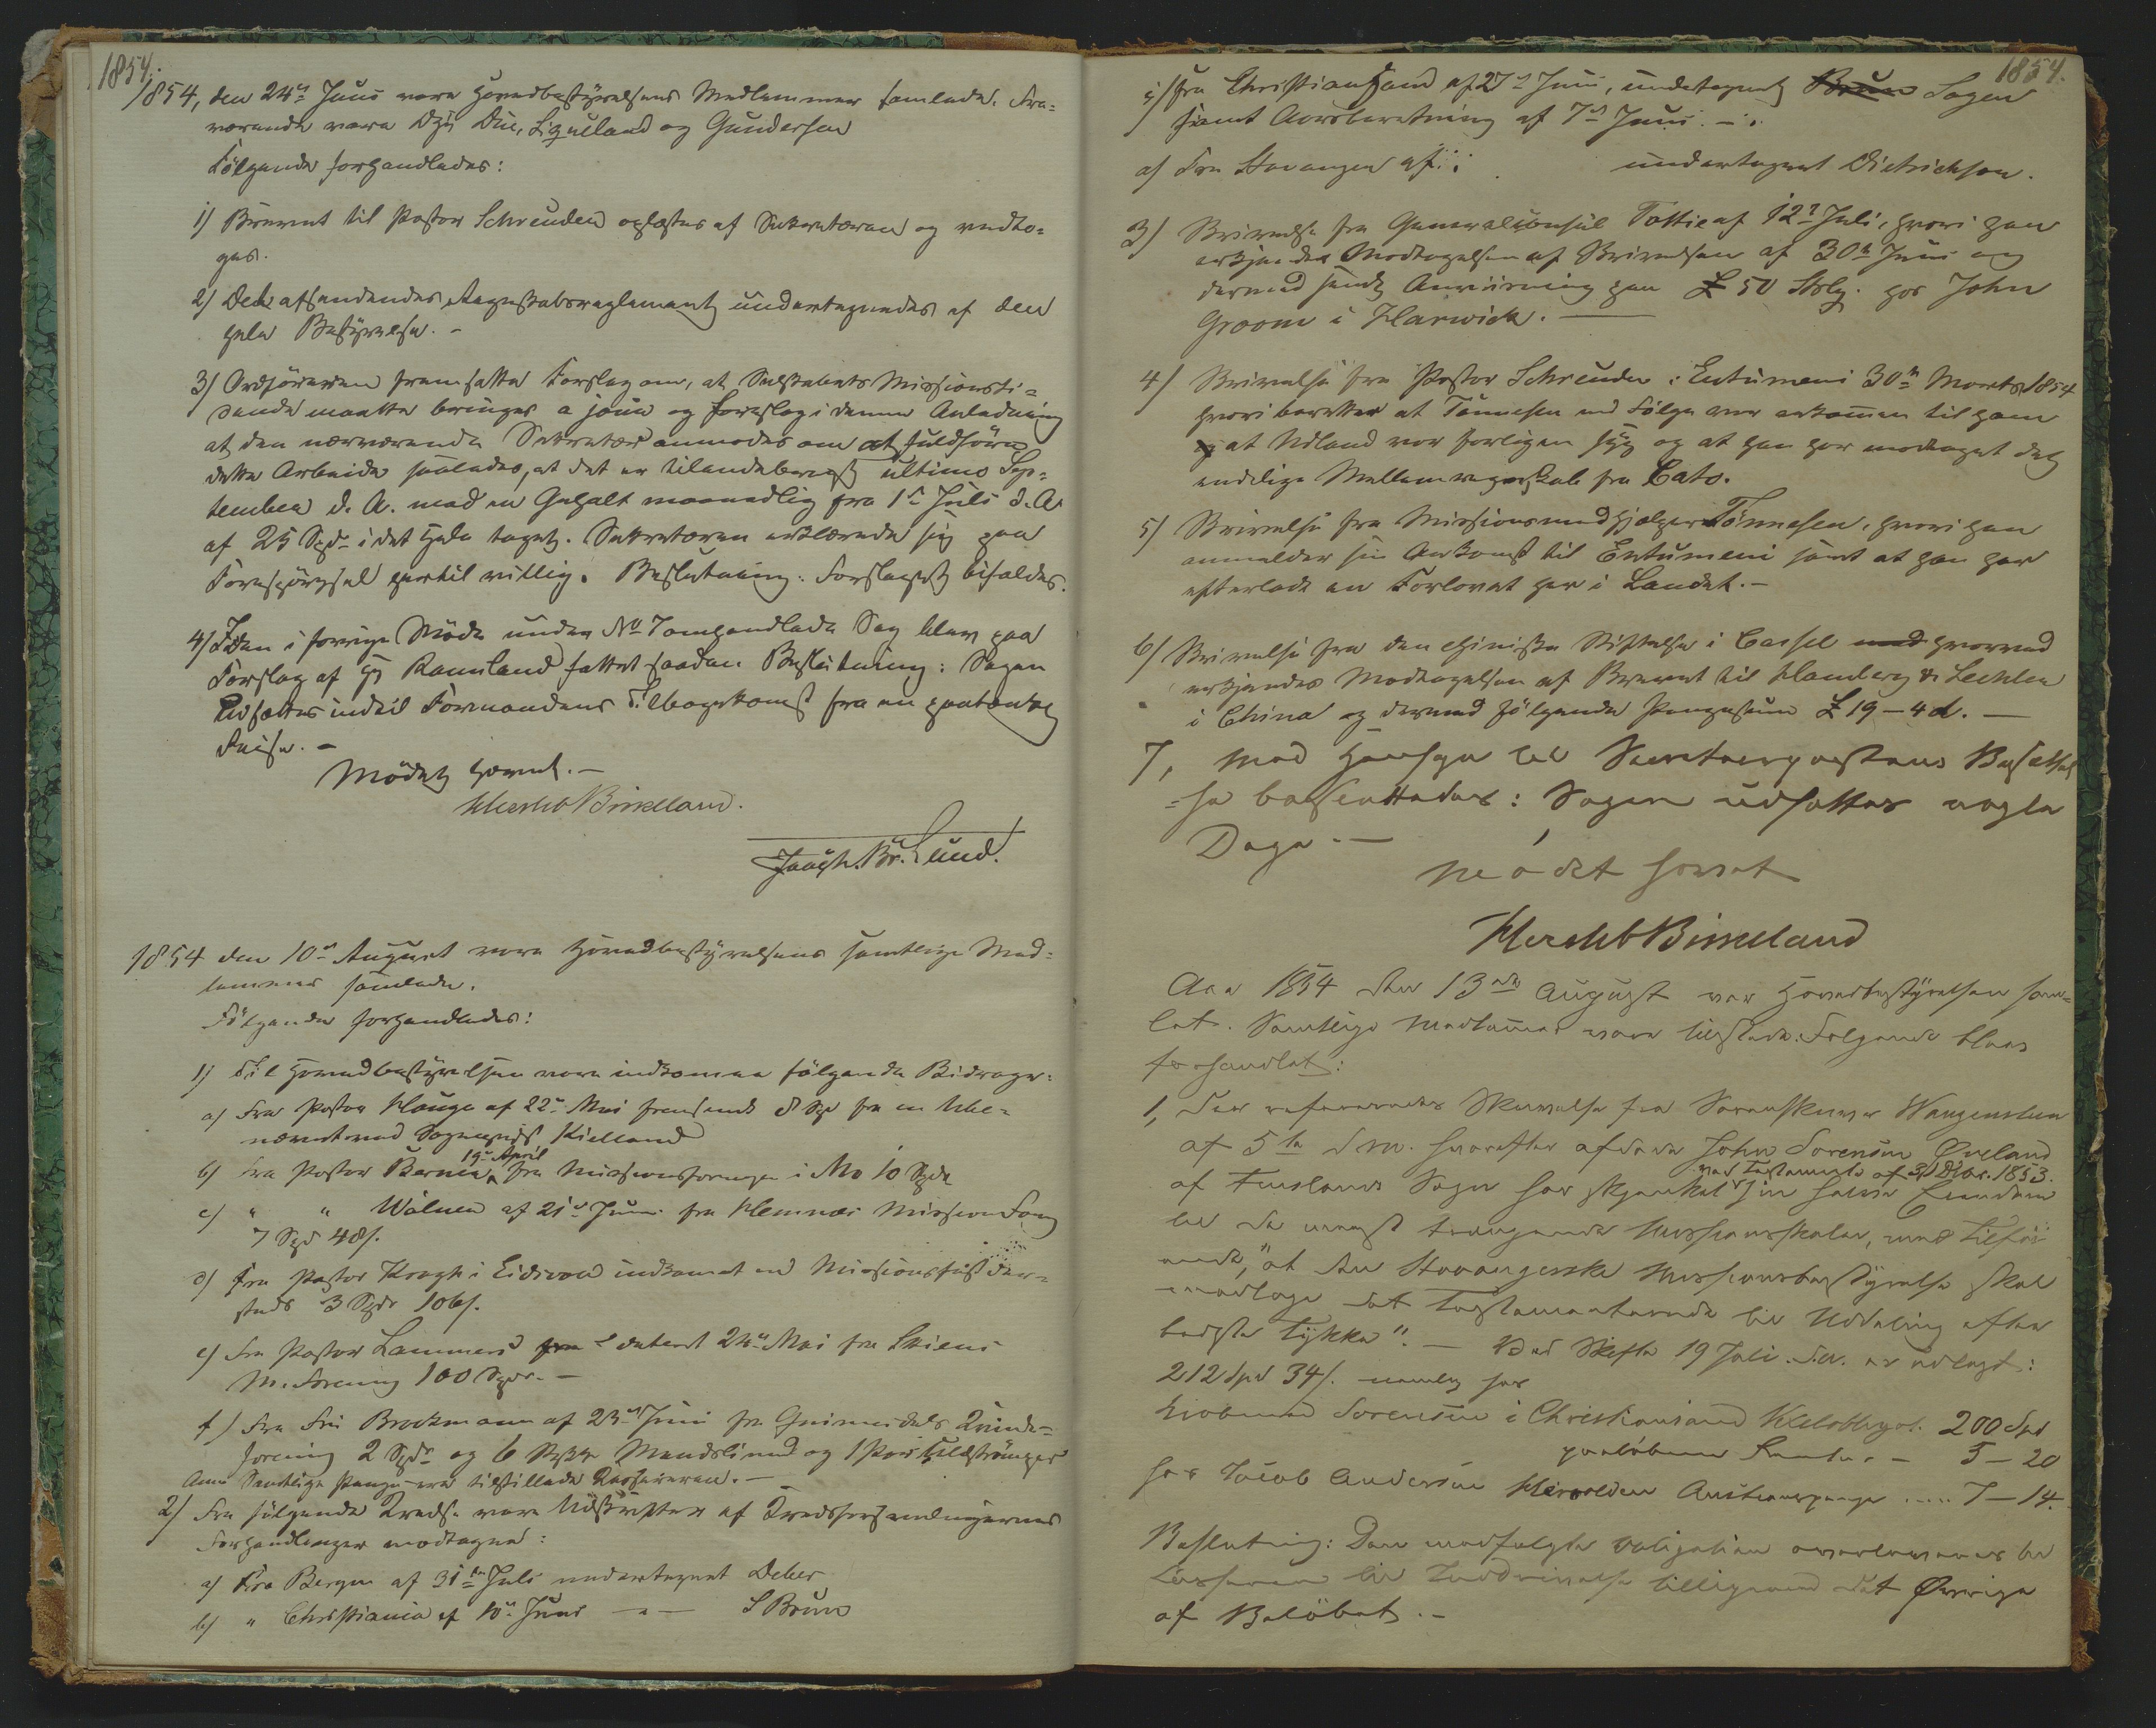 1854.
1854, den 24de Juni vare Hovedbestyrelsens Medlemmer samlede. Fra=
værende vare DHr Due, Sigueland og Gundersen
Følgende forhandledes:
1) Brevet til Pastor Schreuder oplæstes af Sekretæren og vedto=
ges.
2) Det afsendendes Regnskabsreglement undertegnedes af den
hele Bestyrelse. -
3) Ordføreren fremsatte Forslag om, at Selskabets Missionsti=
dende maatte bringes a jour og foreslog i denne Anledning
at den nærværende Sekretær anmodes om at fuldføre
dette Arbeide saaledes, at det er tilendebragt ultimo Sep=
tember d. A. med en Gehalt maanedlig fra 1ste Juli d. A.
af 25 Spd i det Hele taget. Sekretæren erklærede sig paa
Forespørgsel hertil villig. Beslutning: Forslaget bifaldes.
4) I den i forrige Møde under No 7 omhandlede Sag blev paa
Forslag af Hr Ramsland fattet saadan Beslutning: Sagen
Udsættes indtil Formandens Tilbagekomst fra en foretaget
Reise. -
Mødet hævet. -
Hersleb Birkeland.
Jaach. Br. Lund.
1854 den 10de August vare Hovedbestyrelsens samtlige Med=
lemmer samlede.
Følgende forhandledes:
1) Til Hovedbestyrelsen vare indkomne følgende Bidrage:
a) Fra Pastor Hauge af 22de Mai fremsendt 8 Spd fra en Ube=
nævnt ved Sognepræst Kielland
b) Fra Pastor Berner 19de April fra Missionsforeningen i Mo 10 Spdr
c) " " Wolner af 21de Juni fra Hemnæs Missionsforg
7 Spd 48 s.
d) Fra Pastor Kragh i Eidsvold indkomet ved Missionsfest der=
steds 3 Spdr 106 s.
e) Fra Pastor Lammers dateret 24de Mai fra Skiens
M. Forening 100 Spdr. -
f) Fra Frü Brockmann af 23de Juni fra Grimsdals Qvinde=
forening 2 Spdr og 6 Mandslinned og 1 Par
Anm Samtlige Penge ere tilstillede Kassereren. -
2) Fra følgende Kredse vare Udskrifter af Kredsforsamlingernes
Forhandlinger modtagne:
a) Fra Bergen af 31te Juli undertegnet Dekes
b) " Christiania af 10de Juni - " - S Brun
1854.
c) Fra Christianssand af 27de Juni, undertegnet Brun Sagen
samt Aarsberetning af 7de Juni. -
d) Fra Stavanger af undertegnet Dietrichson.
3) Skrivelse fra Generalconsül Tottie af 12te Juli, hvori han
erkjender Modtagelsen af Skrivelsen af 30te Juni og
dermed sendt Anviisning paa £ 50 Strlg. hos John
Groom i Harwich.
4) Skrivelse fra Pastor Schreuder: Entumeni 30te Marts 1854
hvori berettes at Tønnesen med Følge var ankommen til ham
at Udland var forligen syg og at han har modtaget det
endelige Mellemregnskab fra Cato.
5) Skrivelse fra Missionsmedhjælper Tønnesen, hvori han
anmelder sin Ankomst til Entumeni samt at han har
efterladt en Forlovet her i Landet. -
6) Skrivelse fra den chinesiske Stiftelse i Cassel med hvorved
erkjendes Modtagelsen af Brevet til Hamberg & Lechler
i China og dermed følgende Pengesum £ 19 - 4 d. -
7, Med Hensyn til Secretairpostens Besættel=
se besluttedes: Sagen udsættes nogle
Dage. -
Mødet hævet
Hersleb Birkeland
Aar 1854 den 13de August var Hovedbestyrelsen sam=
let. Samtlige Medlemmer vare tilstede. Følgende blev
forhandlet:
1, Der refereredes Skrivelse fra Sorenskriver Wangensteen
af 5te d. M. hvorefter afdøde John Sorensøn Øveland
af Finslands Sogn har skjænket ved Testamente af 31 Dcbr. 1853. sin halve Eiendom
til de meest trængende Missionsskoler, med Tilføi=
ende, "at den Stavangerske Missionsbestyrelse skal
modtage det Testamenterede til Uddeling efter
bedste Tykke". - Ved Skifte 19 Juli d. A. er udlagt:
212 Spd 34 s. nemlig hos
Kiøbmand Sorensen i Christiansand 200 Spd
paaløbne Renter - 5 - 20
hos Jacob Andersen Auctionspenge ..... 7 - 14.
Beslutning: Den medfølgte Obligation overleveres til
Kassereren til Inddrivelse tilligemed det Øvrige
af Beløbet. -